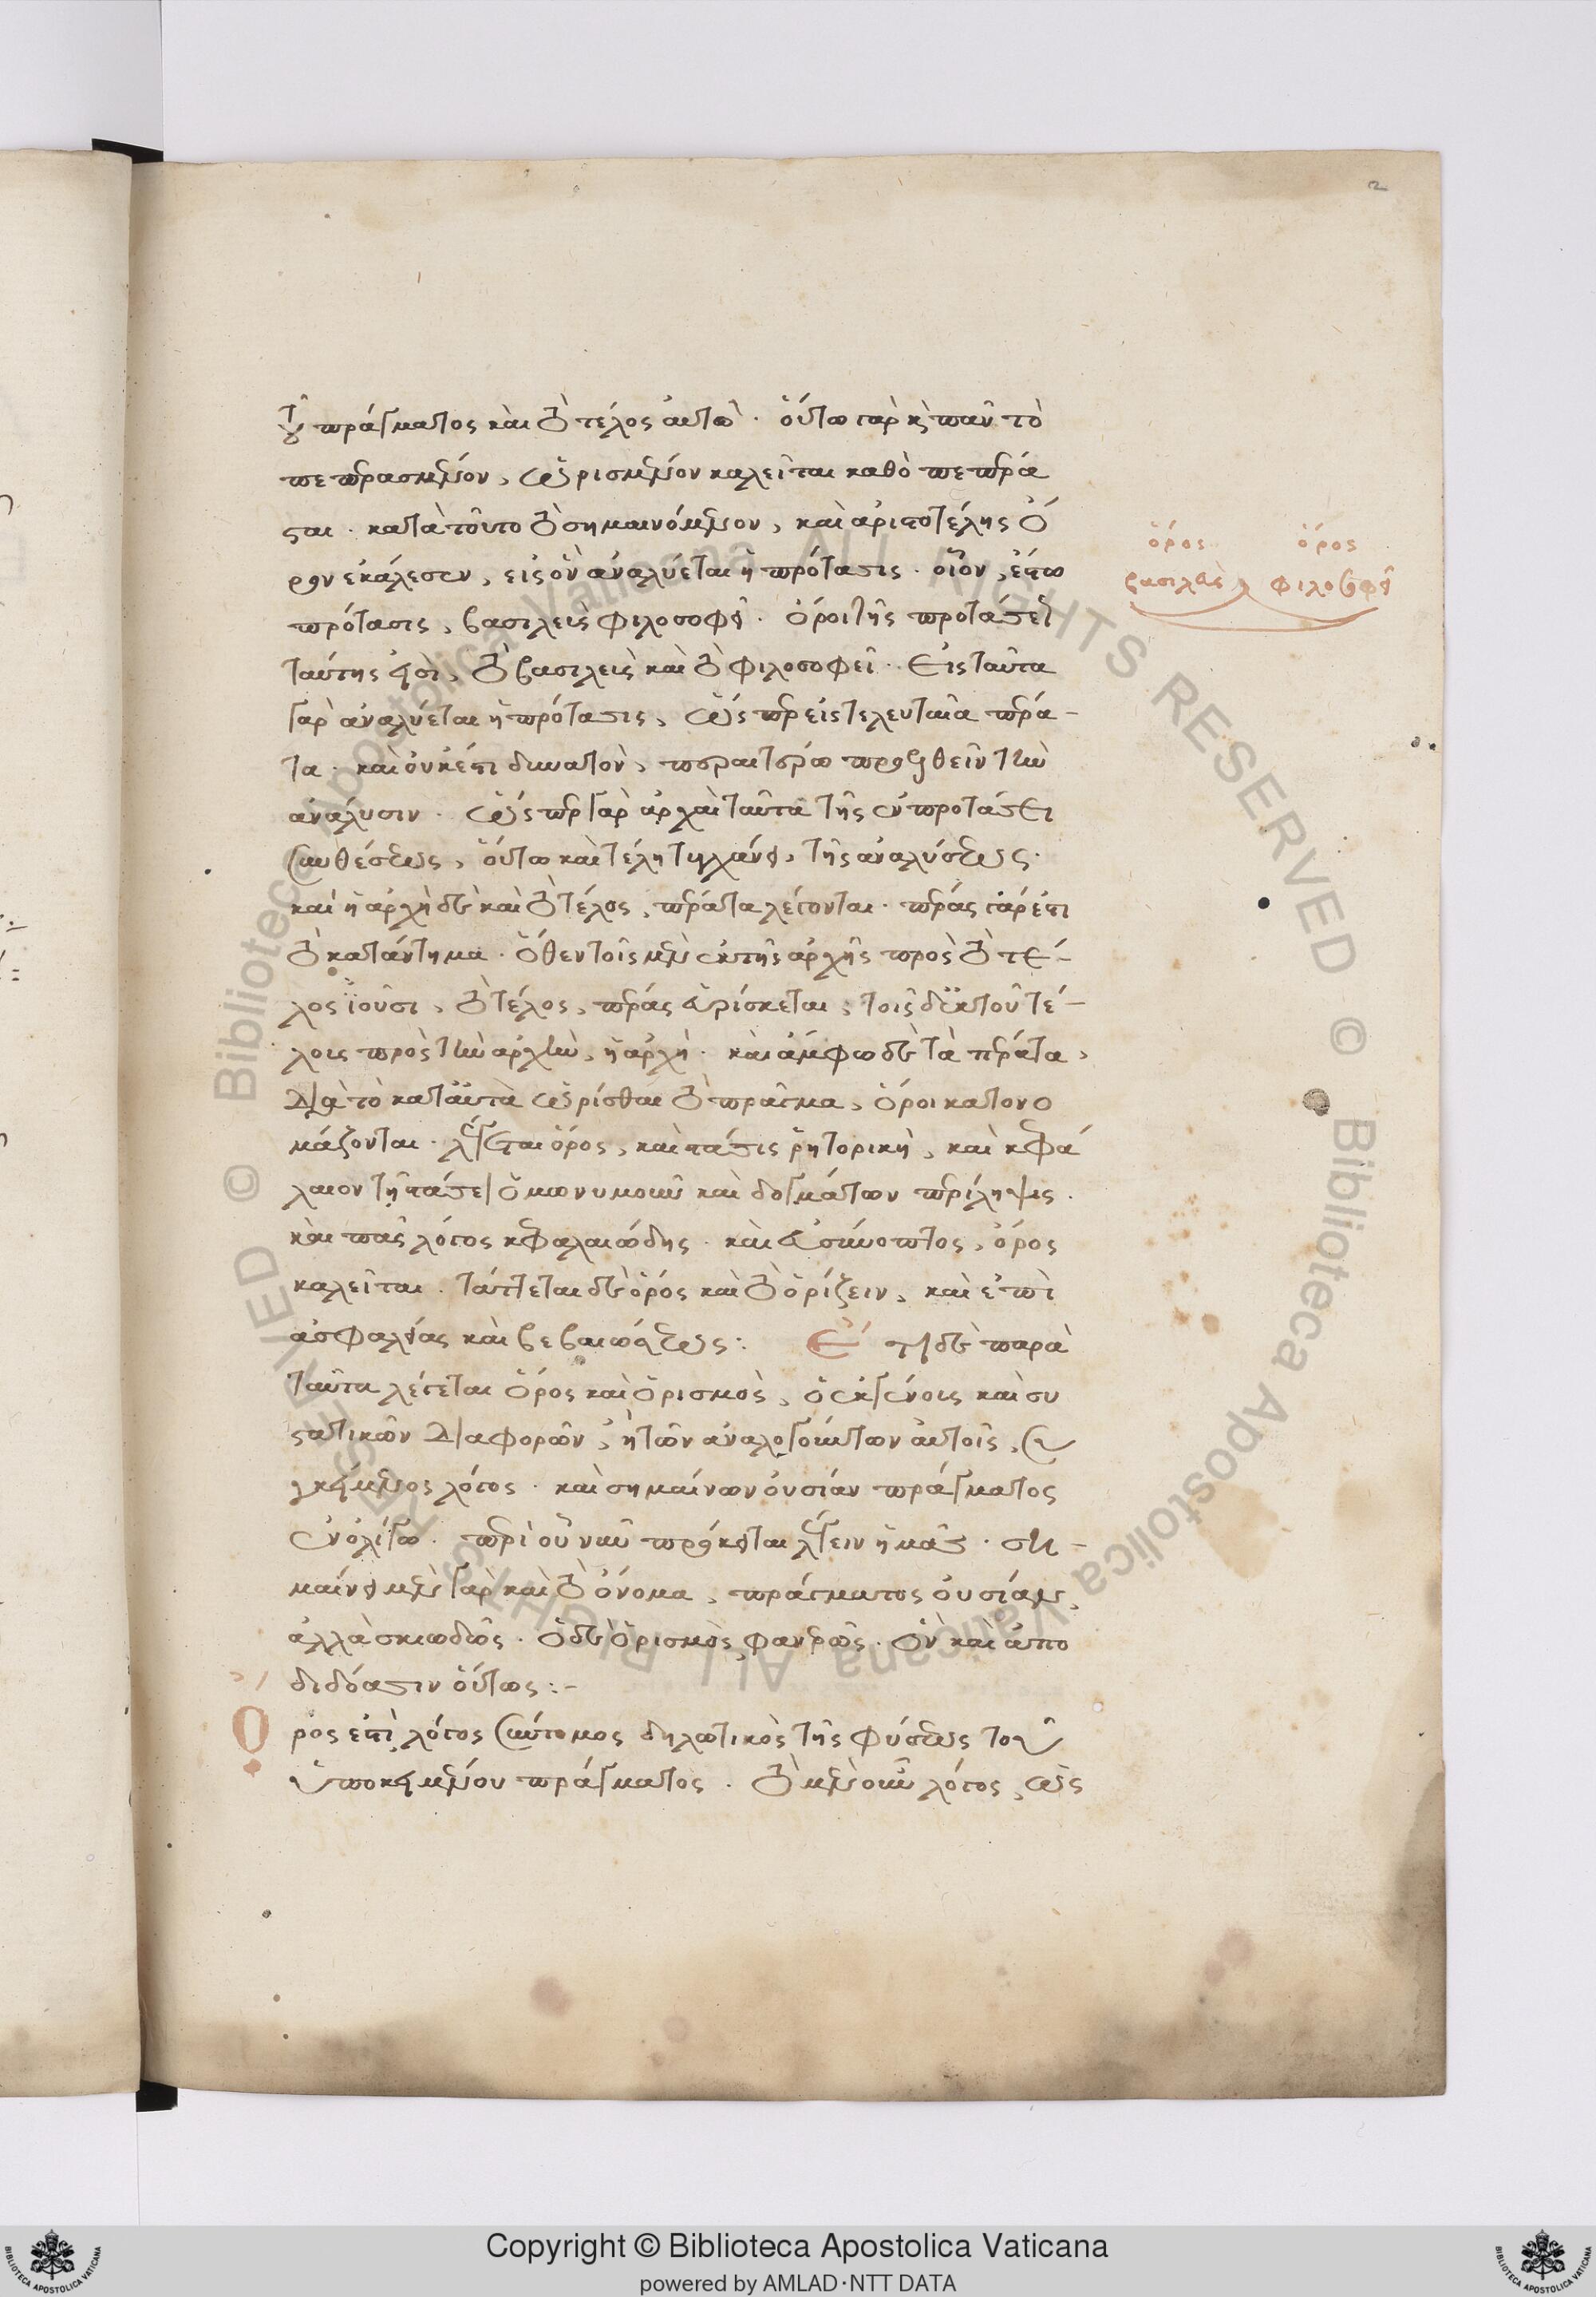 τοῦ πράγματος καὶ τὸ τέλος αὐτῶ. οὕτω γὰρ καὶ πᾶν τὸ
πεπερασμένον, ὡρισμένον καλεῖται καθὸ πεπέρα
σται. κατὰ τοῦτο τὸ σημαινόμενον, καὶ ἀριστοτέλης ὅ
ρον ἐκάλεσεν, εἰς ὃν ἀναλύεται ἡ πρότασις. οἷον, ἔστω
πρότασις, βασιλεὺς φιλοσοφεῖ. ὅροι τῆς προτάσεως
ταύτης εἰσὶ, τὸ βασιλεὺς καὶ τὸ φιλοσοφεῖ. εἰς ταῦτα
γὰρ ἀναλύεται ἡ πρότασις, ὥσπερ εἰς τελευταῖα πέρα-
τα. καὶ οὐκέτι δυνατὸν, περαιτέρω προελθεῖν τὴν
ἀνάλυσιν. ὥσπερ γὰρ ἀρχαὶ ταῦτα τῆς ἐν προτάσει
συνθέσεως, οὕτω καὶ τέλη τυγχάνει, τῆς ἀναλύσεως.
καὶ ἡ ἀρχὴ δὲ καὶ τὸ τέλος, πέρατα λέγονται. πέρας γάρ ἐστι
τὸ κατάντημα. ὅθεν τοῖς μὲν ἐκ τῆς ἀρχῆς πρὸς τὸ τέ-
λος ἰοῦσι, τὸ τέλος, πέρας εὑρίσκεται, τοῖς δ' ἐκ τοῦ τέ-
λους πρὸς τὴν ἀρχὴν, ἡ ἀρχή. καὶ ἄμφω δὲ τὰ πέρατα,
διὰ τὸ κατ' αὐτὰ ὡρίσθαι τὸ πρᾶγμα, ὅροι κατονο
μάζονται. λέγεται ὅρος, καὶ στάσις ῥητορικὴ, καὶ κεφά
λαιον τῇ στάσει ὁμωνυμοῦν καὶ δογμάτων περίληψις.
καὶ πᾶς λόγος κεφαλαιώδης. καὶ εὐσύνοπτος, ὅρος
καλεῖται. τάττεται δὲ ὅρος καὶ τὸ ὁρίζειν, καὶ ἐπὶ
ἀσφαλείας καὶ βεβαιώσεως: ἔτι δὲ παρὰ
ταῦτα λέγεται ὅρος καὶ ὁρισμὸς, ὁ ἐκ γένους καὶ συ
στατικῶν διαφορῶν, ἢ τῶν ἀναλογούντων αὐτοῖς, συ
γκείμενος λόγος. καὶ σημαίνων οὐσίαν πράγματος
ἐν ὀλίγω. περὶ οὗ νῦν πρόκειται λέγειν ἡμᾶς. ση-
μαίνει μὲν γὰρ καὶ τὸ ὄνομα, πράγματος οὐσίαν,
ἀλλὰ σκιωδῶς. ὁ δὲ ὁρισμὸς φανερῶς. ὃν καὶ ἀπο
διδόασιν οὕτως:-
Ὅρος ἐστὶ λόγος σύντομος δηλωτικὸς τῆς φύσεως τοῦ
ὑποκειμένου πράγματος. τὸ μὲν οὖν λόγος, ὡς
ὅρος ὅρος
βασιλεὺς φιλοσοφεῖ
2
Copyright © Biblioteca Apostolica Vaticana
powered by AMLAD·NTT DATA